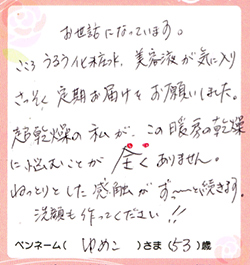 お世話になっています。
こころうるうる化粧水、美容液が気に入り
さっそく定期お届けをお願いしました。
超乾燥の私が、この暖房の乾燥
に悩むことが全くありません。
ねっとりとした感触がずっ〜と続きます。
洗顔も作ってください!!
ペンネーム( ゆめこ )さま(53)歳